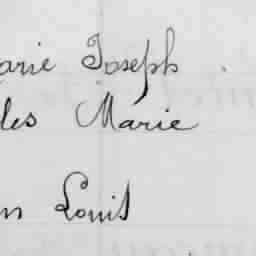 arie Joseph
les Marie
n Louis